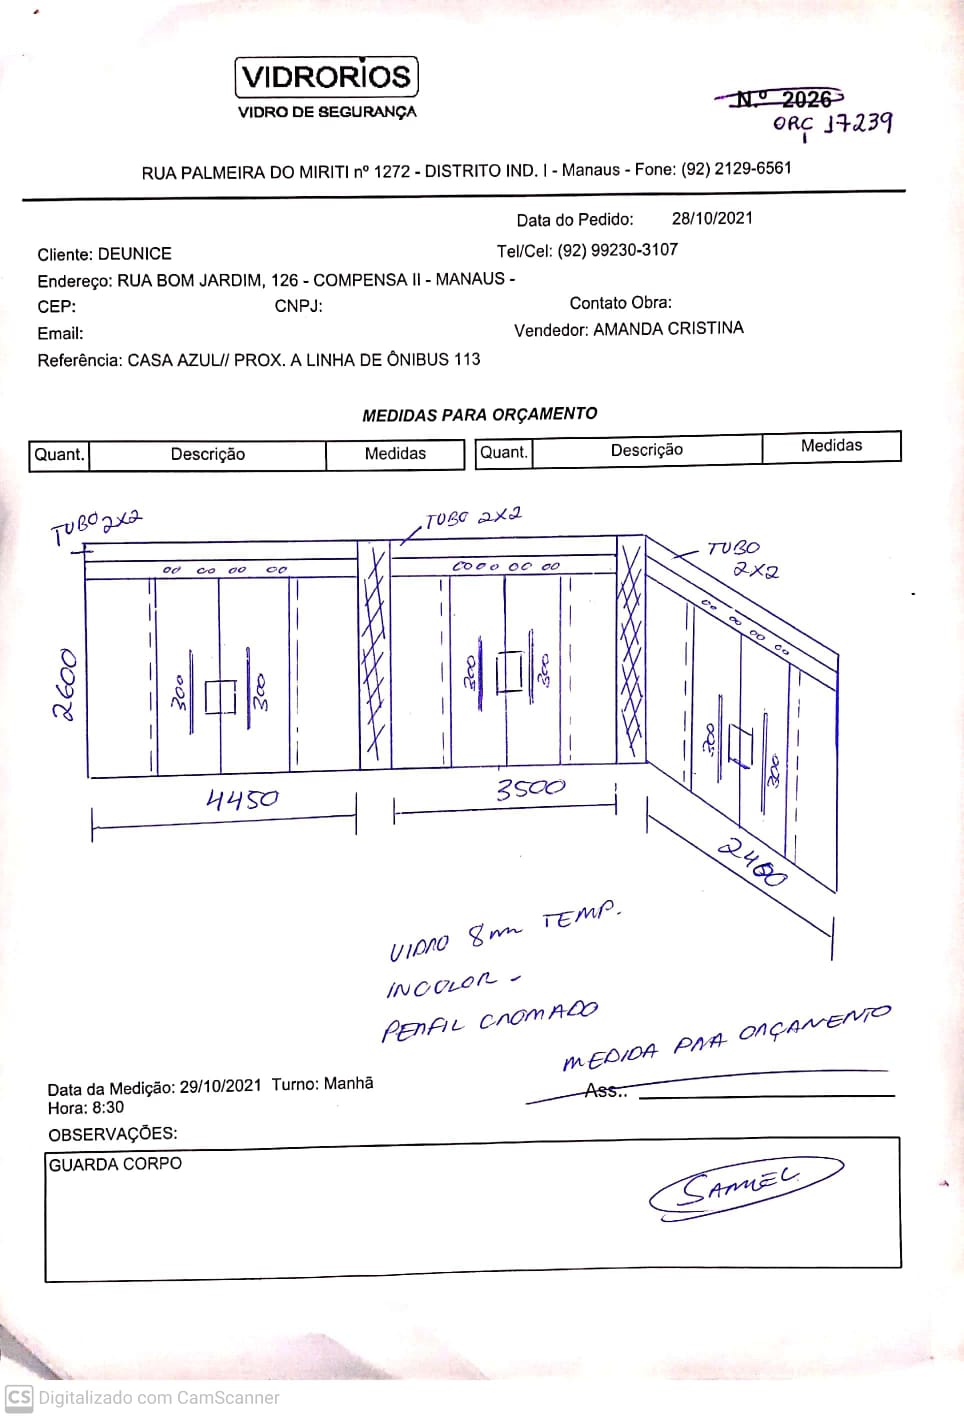 VIDRORIOS
VIDRO DE SEGURANÇA
N.º 2026
ORÇ 17239
RUA PALMEIRA DO MIRITI nº 1272 - DISTRITO IND. I - Manaus - Fone: (92) 2129-6561
Data do Pedido: 28/10/2021
Cliente: DEUNICE
Tel/Cel: (92) 99230-3107
Endereço: RUA BOM JARDIM, 126 - COMPENSA II - MANAUS -
CEP: CNPJ: Contato Obra:
Email: Vendedor: AMANDA CRISTINA
Referência: CASA AZUL// PROX. A LINHA DE ÔNIBUS 113
MEDIDAS PARA ORÇAMENTO
Quant. Descrição Medidas Quant. Descrição Medidas
TUBO 2X2
TUBO 2X2
TUBO
2X2
2600
300 300
300 300
300 300
4450
3500
2400
VIDRO 8mm TEMP.
INCOLOR -
PERFIL CROMADO
MEDIDA PARA ORÇAMENTO
Data da Medição: 29/10/2021 Turno: Manhã
Ass..
Hora: 8:30
OBSERVAÇÕES:
GUARDA CORPO
SAMUEL
CS Digitalizado com CamScanner